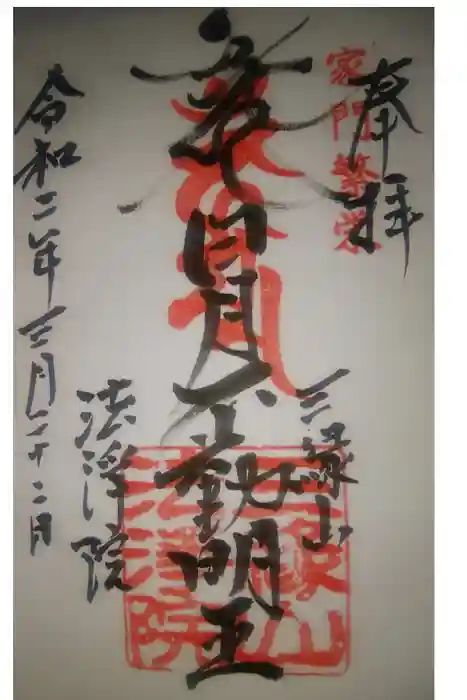 奉拝
家門繁栄
日月不動明王
三縁山
法浄院
令和二年三月二十二日